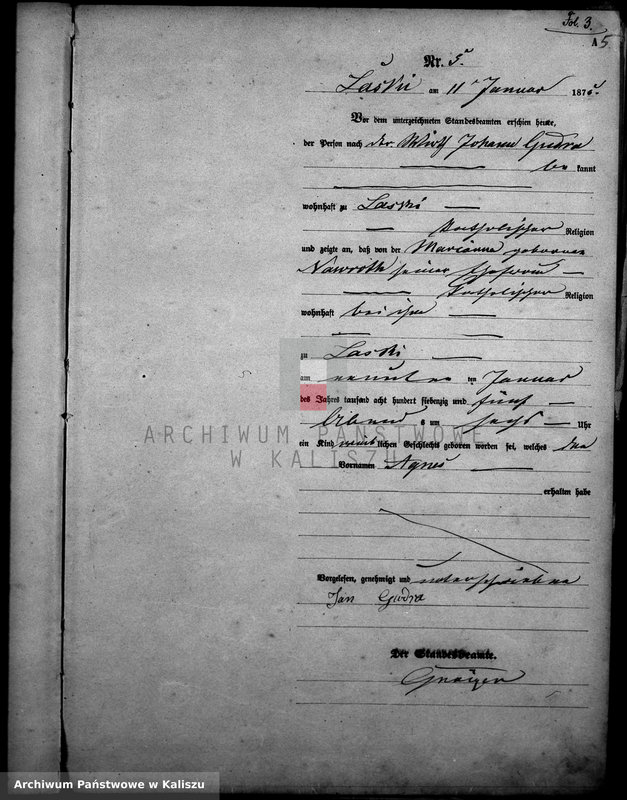 Fol. 3.
A 5
Nr. 5.
Laski am 11 Januar 1875.
Vor dem unterzeichneten Standesbeamten erschien heute,
der Person nach der Wirth Johann Gudra
bekannt
wohnhaft zu Laski
katholischer Religion
und zeigte an, daß von der Marianna geborenen
Nawroth seiner Ehefrau
katholischer Religion
wohnhaft bei ihm
zu Laski
am neunten ten Januar
des Jahres tausend acht hundert siebenzig und fünf
Abends um sechs Uhr
ein Kind weiblichen Geschlechts geboren worden sei, welches den
Vornamen Agnes
erhalten habe
Vorgelesen, genehmigt und unterschrieben
Jan Gudra
Der Standesbeamte.
ARCHIWUM PAŃSTWOWE
W KALISZU
Archiwum Państwowe w Kaliszu